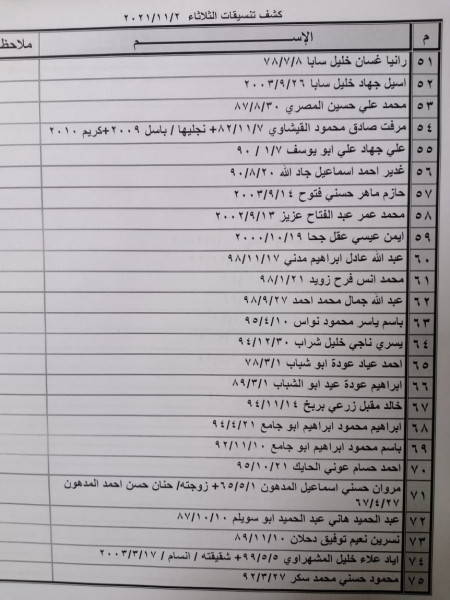 كشف تنسيقات الثلاثاء ٢٠٢١/١١/٢
م الإســـــم ملاحظ
٥١ رانيا غسان خليل سابا ٧٨/٧/٨
٥٢ اسيل جهاد خليل سابا ٢٠٠٣/٩/٢٦
٥٣ محمد علي حسين المصري ٨٧/٨/٣٠
٥٤ مرفت صادق محمود القيشاوي ٨٢/١١/٧+ نجليها / باسل ٢٠٠٩+كريم ٢٠١٠
٥٥ علي جهاد علي ابو يوسف ١/٧ / ٩٠
٥٦ غدير احمد اسماعيل جاد الله ٩٠/٨/٢٠
٥٧ حازم ماهر حسني فتوح ٢٠٠٣/٩/١٤
٥٨ محمد عمر عبد الفتاح عزيز ٢٠٠٢/٩/١٣
٥٩ ايمن عيسي عقل جحا ٢٠٠٠/١٠/١٩
٦٠ عبد الله عادل ابراهيم مدني ٩٨/١١/١٧
٦١ محمد انس فرح زويد ٩٨/١/٢١
٦٢ عبد الله جمال محمد احمد ٩٨/٩/٢٧
٦٣ باسم ياسر محمود نواس ٩٥/٤/١٠
٦٤ يسري ناجي خليل شراب ٩٤/١٢/٣٠
٦٥ احمد عياد عودة ابو شباب ٧٨/٣/١
٦٦ ابراهيم عودة عيد ابو الشباب ٨٩/٣/١
٦٧ خالد مقبل زرعي بريخ ٩٤/١١/١٤
٦٨ ابراهيم محمود ابراهيم ابو جامع ٩٤/٤/٢١
٦٩ باسم محمود ابراهيم ابو جامع ٩٢/١١/١٠
٧٠ احمد حسام عوني الحايك ٩٥/١٠/٢١
٧١ مروان حسني اسماعيل المدهون ٦٥/٥/١+ زوجته/ حنان حسن احمد المدهون
٦٧/٤/٢٧
٧٢ عبد الحميد هاني عبد الحميد ابو سويلم ٨٧/١٠/١٠
٧٣ نسرين نعيم توفيق دحلان ٨٩/١١/١٠
٧٤ اياد علاء خليل المشهراوي ٩٩/٥/٥+ شقيقته / انسام / ٢٠٠٣/٣/١٧
٧٥ محمود حسني محمد سكر ٩٢/٣/٢٧